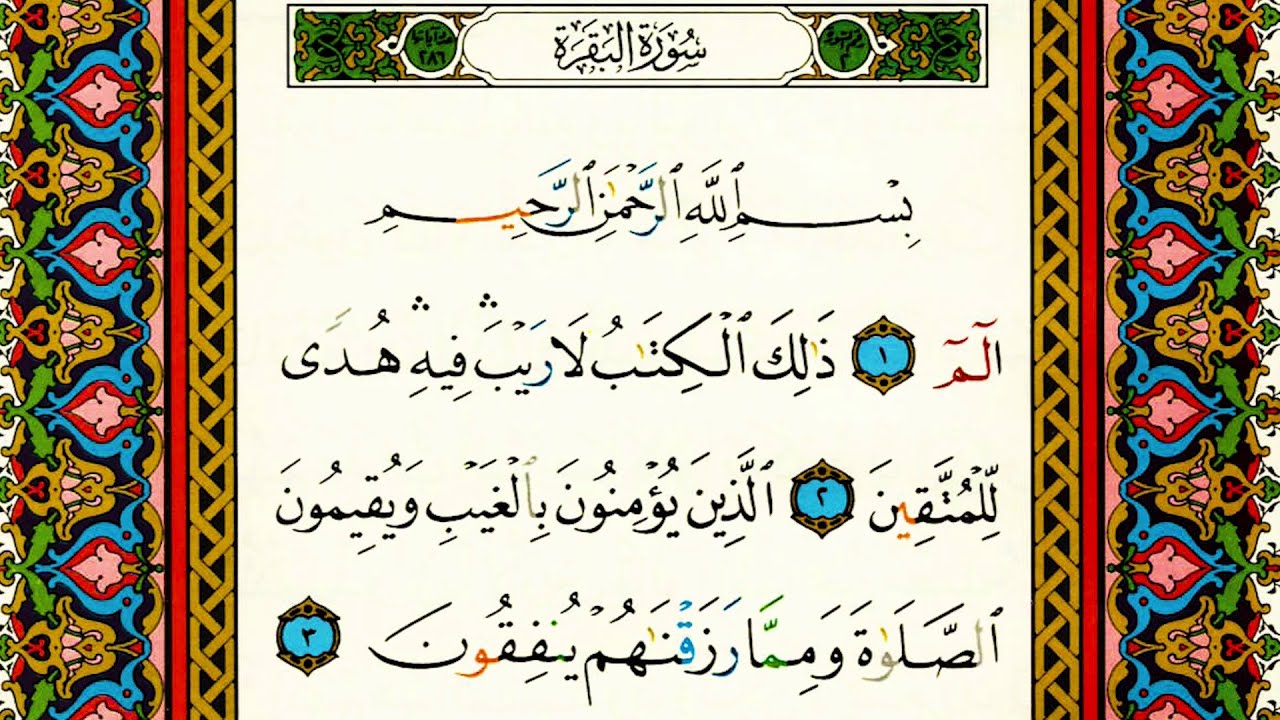 سُورَةُ الْبَقَرَةِ
بِسْمِ ٱللَّهِ ٱلرَّحْمَٰنِ ٱلرَّحِيمِ
الٓمٓ ١ ذَٰلِكَ ٱلْكِتَٰبُ لَا رَيْبَ ۛ فِيهِ ۛ هُدًى
لِّلْمُتَّقِينَ ٢ ٱلَّذِينَ يُؤْمِنُونَ بِٱلْغَيْبِ وَيُقِيمُونَ
ٱلصَّلَوٰةَ وَمِمَّا رَزَقْنَٰهُمْ يُنفِقُونَ ٣